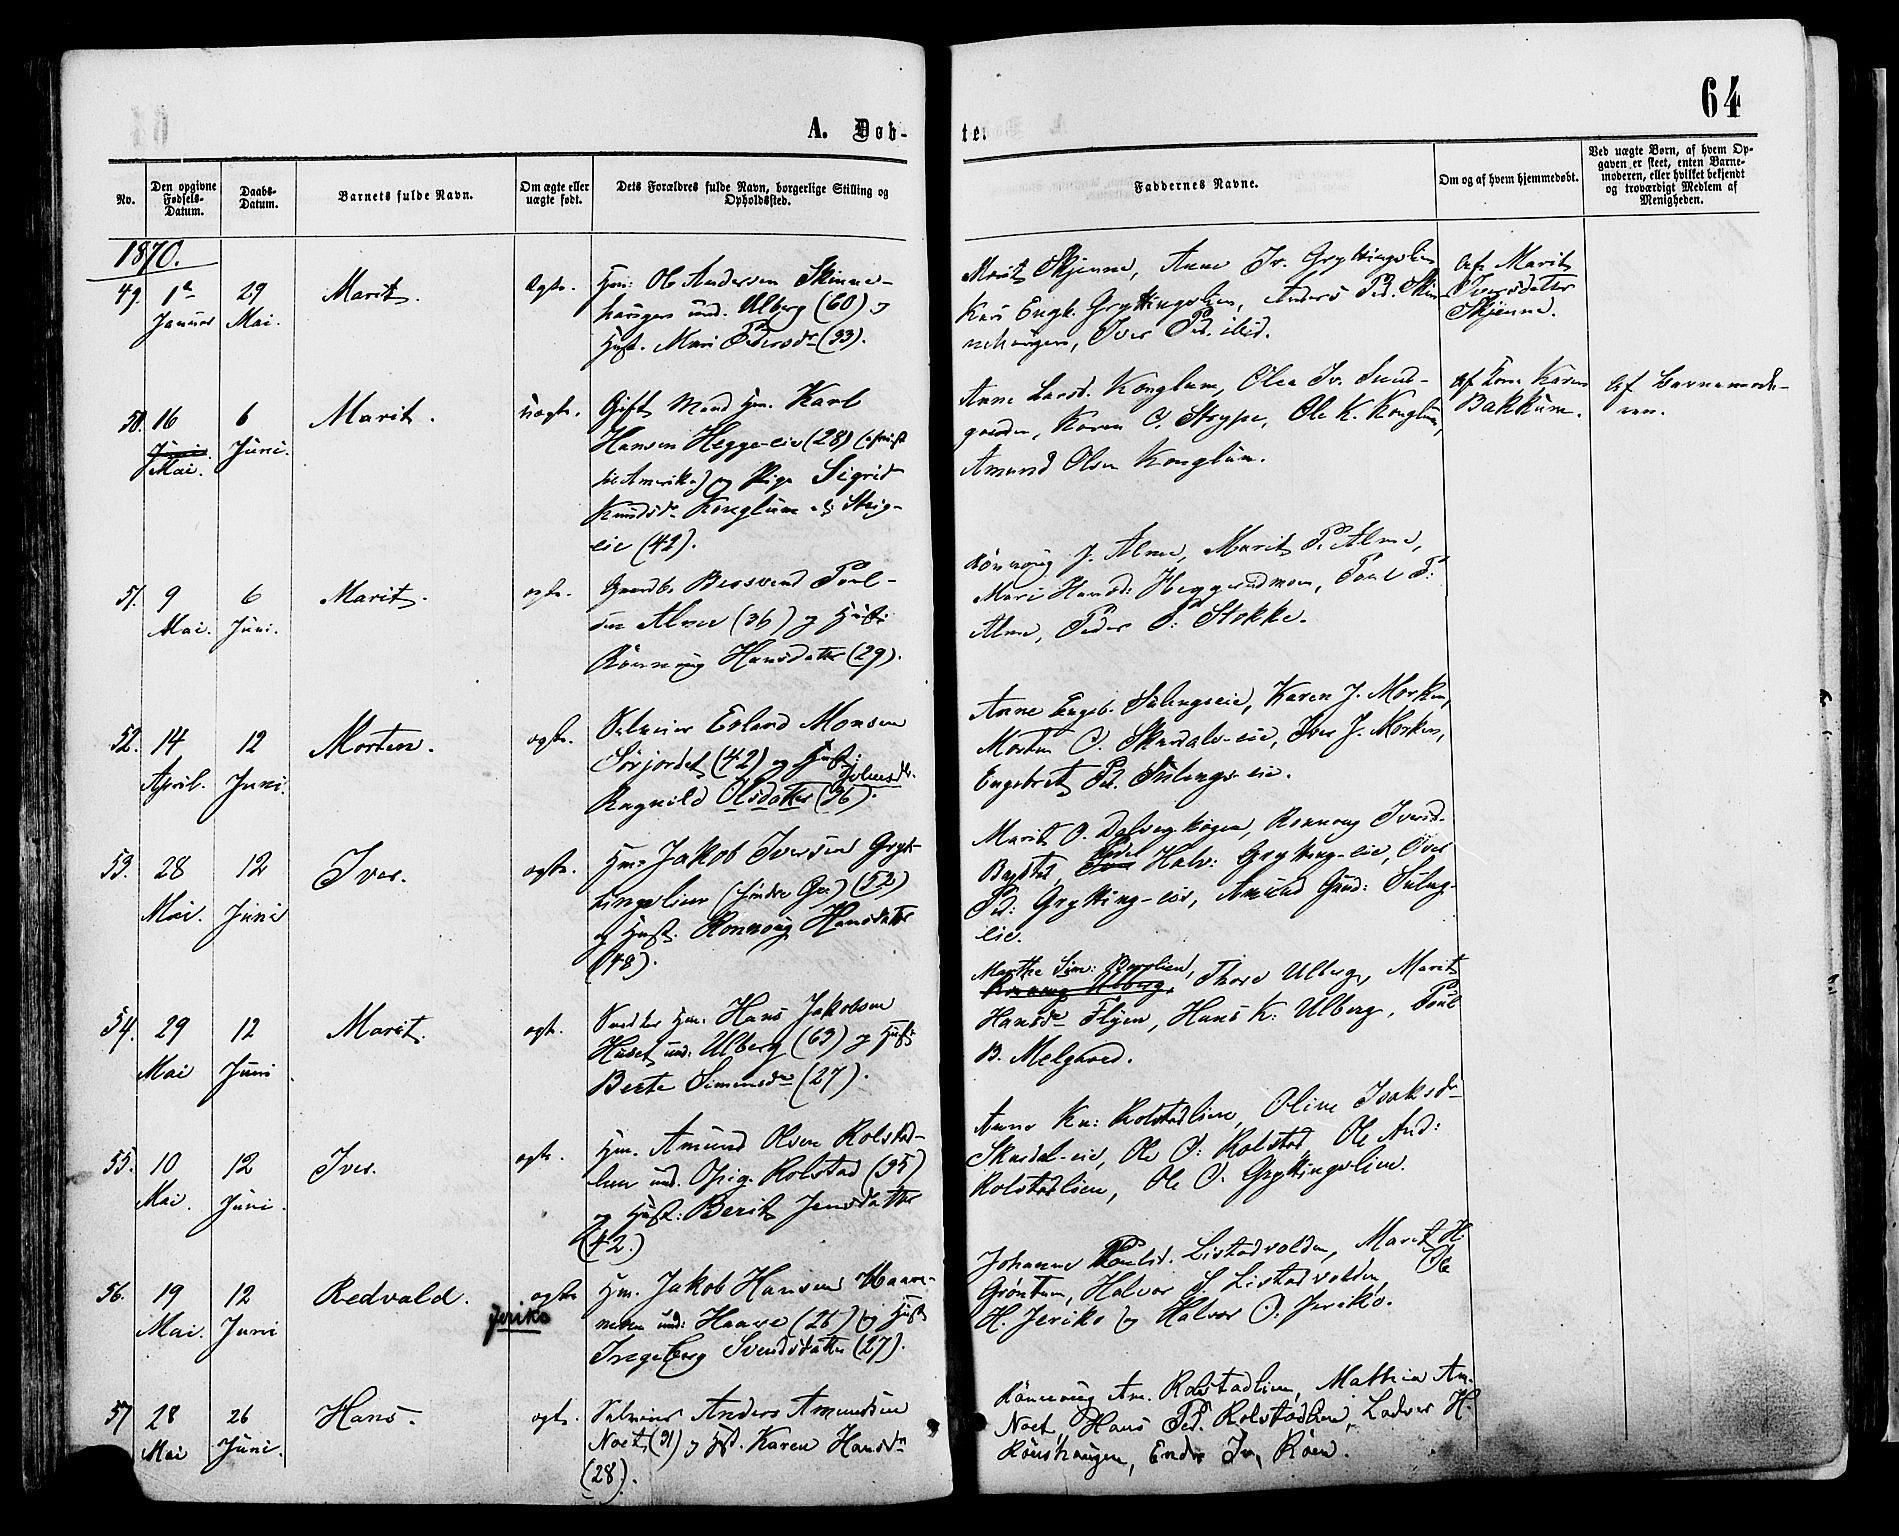 64
A. Døb-
te.
No.
Den opgivne Fødsels-Datum.
Daabs-Datum.
Barnets fulde Navn.
Om ægte eller uægte født.
Dets Forældres fulde Navn, borgerlige Stilling og Opholdssted.
Faddernes Navne.
Om og af hvem hjemmedøbt.
Ved uægte Børn, af hvem Opgaven er skeet, enten Barnemoderen, eller hvilket bekjendt og troværdigt Medlem af Menigheden.
1870.
49. 1ste Januar
29 Mai.
Marit.
Ægte.
Hm: Ole Andersen Skinne-
haugen und. Ulberg (60) og
Hust. Mari Pedersdr (33).
Marit Skjenne, Anne Iv. Gryttingslien
Kari Engb. Gryttingslien, Anders Ped. Skin-
nehaugen, Iver Ped. ibid.
Af Marit
Iversdatter
Skjenne.
50. 16 Juni Mai.
6 Juni.
Marit.
uægte.
Gift Mand Hm. Karl
Hansen Hegge-eie (28) (
til Amerika) og Pige Sigrid
Knudsdr Konglum
eie (42).
Anne Larsd. Konglum, Olea Iv. Sund-
gaarden, Karen O. Strype, Ole K. Konglum,
Amund Olsen Konglum.
Af Karen
Bakkum.
Af Barnemode-
ren.
51. 9 Mai.
6 Juni.
Marit.
ægte.
Gaardb. Bersvend Poul-
sen Alme (36) og Hust:
Rønnoug Hansdatter (29).
Rønnoug J. Alme, Marit P. Alme,
Mari Hansd: Heggerudmoen, Poul P:
Alme, Peder P: Stokke.
52. 14 April.
12 Juni.
Morten.
ægte.
Selveier Erland Monsen
Sørjordet (42) og Hust:
Johnsdr.
Ragnild Olsdatter (36).
Anne Engeb. Sulengseie, Karen J. Morken,
Morten O. Skurdals-eie, Iver J. Morken,
Engebret Pd. Sulengs-eie.
53. 28 Mai.
12 Juni
Iver.
ægte.
Hm. Jakob Iversen Gryt-
tingslien (søndre Gr.) (52)
og Hust. Ronnoug Hansdatter
(48).
Marit O. Dalseghougen, Ronnoug Iversd.
Bagstad, Halv: Grytting-eie, Iver
Pd: Grytting-eie, Amund Gund: Suleng-
eie.
54. 29 Mai
12 Juni
Marit.
ægt.
Snedker Hm. Hans Jakobsen
Huset und. Ulberg (63) og Hust:
Berte Simensdr (27).
Marthe Sim:
Ronnoug Ulberg, Thore Ulberg, Marit
Hansdr Flyen, Hans K: Ulberg, Poul
B. Melgaard.
55. 10 Mai.
12 Juni.
Iver.
ægte.
Hm. Amund Olsen Rolstad-
lien und. Opig. Rolstad (35)
og Hust: Berit Jensdatter
(42.)
Anne Kn: Rolstadlien, Oline Isaksdr
Skurdal-eie, Ole O: Rolstad, Ole And:
Rolstadlien, Ole O. Gryttingslien.
56. 19 Mai.
12 Juni
Redvald.
Jeriko
ægte
Hm. Jakob Hansen Haave-
moen und: Haave (26) og Hust
Ingeborg Svendsdatter (27).
Johanne Poulsd. Listadvolden, Marit H.
Grøntun, Halvor S. Listadvolden, Ole
H. Jeriko og Halvor O. Jeriko.
57 28 Mai
26 Juni.
Hans.
ægte.
Selveier Anders Amundsen
Noet (31) og Hust. Karen Hansdr
(28).
Rønnoug Am. Rolstadlien, Mathea Am.
Noet, Hans Ped. Rolstadlien, Ladver H.
Rønshaugen, Endre Iv. Røen.